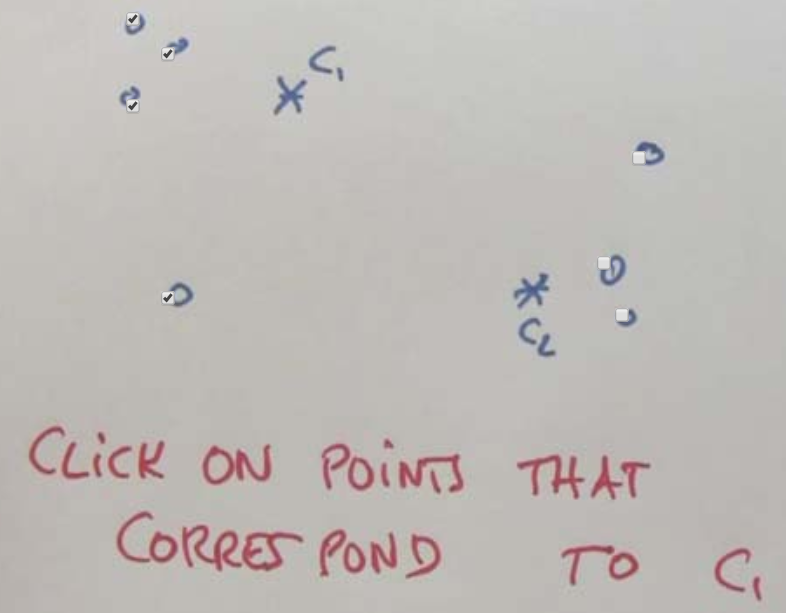 C1
C2
CLiCK ON POiNTS THAT
CORRESPOND TO C1